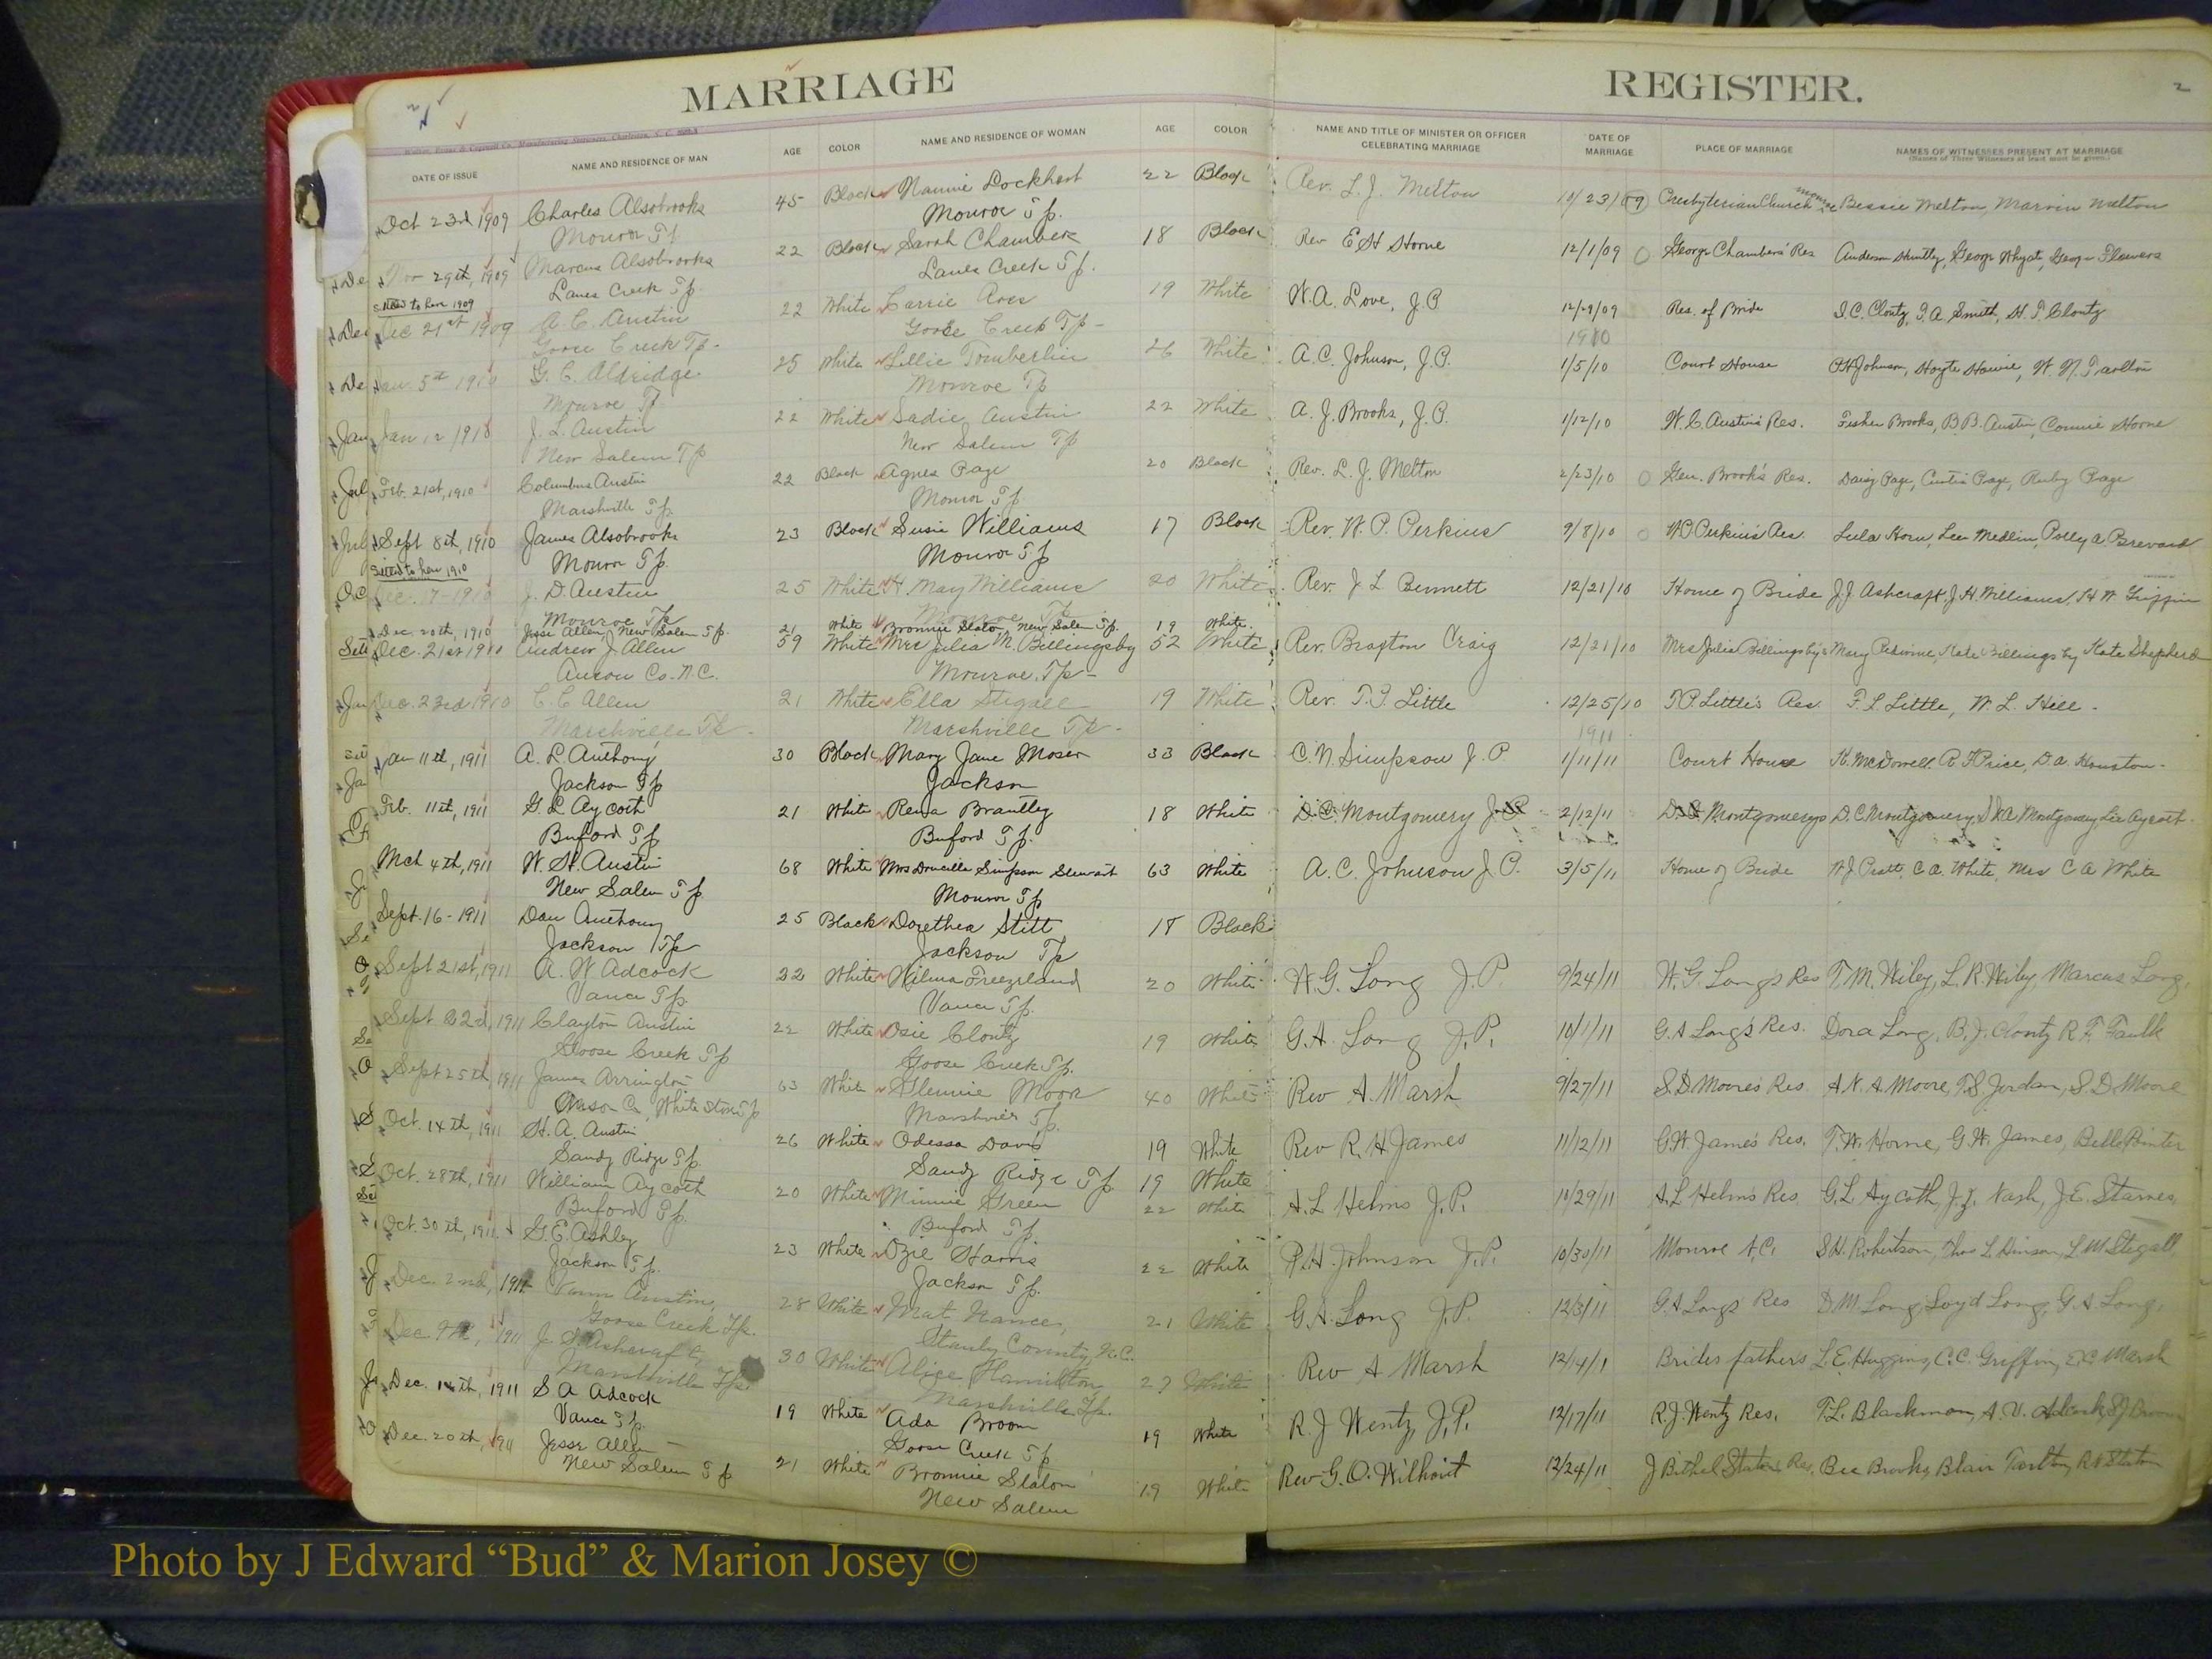 MARRIAGE REGISTER. 2
DATE OF ISSUE NAME AND RESIDENCE OF MAN AGE COLOR NAME AND RESIDENCE OF WOMAN AGE COLOR NAME AND TITLE OF MINISTER OR OFFICER CELEBRATING MARRIAGE DATE OF MARRIAGE PLACE OF MARRIAGE NAMES OF WITNESSES PRESENT AT MARRIAGE
(Names of Three Witnesses at least must be given.)
Oct 23rd 1909 Charles Alsobrooks 45 Black Nannie Lockhart 22 Black Rev. L. J. Melton 23/09 Presbyterian Church Monroe Bessie Melton, Marvin Melton
Monroe Tp. Monroe Tp.
Nov 29th, 1909 Marcus Alsobrooks 22 Black Sarah Chambers 18 Black Rev E H Horne 12/1/09 George Chambers' Res Anderson Huntley, George Whyat, George Flowers
Lanes Creek Tp. Lanes Creek Tp.
Settled to here 1909
Dec 21st 1909 A. C. Austin 22 White Carrie 19 White W. A. Love, J.P. 12/29/09 Res. of Bride J. C. Clontz, J. A. Smith, H. J. Clontz
Goose Creek Tp. Goose Creek Tp. 1910
Jan. 5th 1910 G. C. Aldridge 25 White Lillie Tomberlin 26 White A. C. Johnson, J.P. 1/5/10 Court House P H Johnson, Hoyte Howie,
Monroe Tp. Monroe Tp
Jan 12 1910 J. L. Austin 22 White Sadie Austin 22 White A. J. Brooks, J.P. 1/12/10 W. C Austin's Res. Fisher Brooks, B B. Austin, Connie Horne
New Salem Tp New Salem Tp
Feb. 21st, 1910 Columbus Austin 22 Black Agnes Page 20 Black Rev. L. J. Melton 2/23/10 Geo. Brook's Res. Daisy Page, Curtis Page, Ruby Page
Marshville Tp. Monroe Tp
Sept 8th, 1910 James Alsobrooks 23 Black Susie Williams 17 Black Rev. W. P. Perkins 9/8/10 W P Perkins Res. Lula Horn, Lee Medlin, Polly A. Brevard
Monroe Tp. Monroe Tp
Settled to here 1910
Dec. 17-1910 J. D. Austin 25 White May Williams 20 White Rev. J L Bennett 12/21/10 Home of Bride J. J. Ashcraft, J. H. Williams, H W Griffin
Monroe Tp Monroe Tp
Dec. 20th, 1910 Jesse Allen, New Salem Tp. 21 White Bronnie Slaton, New Salem Tp. 19 White.
Dec. 21st 1910 Andrew J. Allen 59 White Mrs Julia M. Billingsby 52 White Rev. Braxton Craig 12/21/10 Mrs Julia Billingsby's Mary Redwine, Kate Billingsby Kate Shepherd
Anson Co. N.C. Monroe, Tp
Dec. 23rd 1910 C. C Allen 21 White Ella Stegall 19 White Rev. T. J. Little 12/25/10 Little's Res. F. L. Little, W. L. Hill.
Marshville Tp. Marshville Tp. 1911
Jan 11th, 1911 A. L. Anthony 30 Black Mary Jane Moser 33 Black C. N. Simpson J. P 1/11/11 Court House H. McDowell. R. F Price, D. A. Houston.
Jackson Tp Jackson
Feb. 11th, 1911 G. L Aycoth 21 White Rena Brantley 18 White D. C. Montgomery 2/12/11 Montgomerys D. C Montgomery, Montgomery, Lee Aycoth.
Buford Tp. Buford Tp.
Mch 4th, 1911 W. H. Austin 68 White Mrs Drucilla Simpson Stewart 63 White A. C. Johnson J.P. 3/5/11 Home of Bride W J Pratt, C. A. White, Mrs C A White
New Salem Tp. Monroe Tp
Sept. 16-1911 Dan Anthony 25 Black Dorethea Stitt 18 Black
Jackson Tp Jackson Tp
Sept 21st, 1911 A. W Adcock 22 White Wilma Freezeland 20 White W. G. Long J. P. 9/24/11 W. G. Long's Res T. M. Wiley, L. R. Wiley, Marcus Long,
Vance Tp. Vance Tp.
Sept 22d, 1911 Clayton Austin 22 White Osie Clontz 19 White G. A. Long J. P. 10/1/11 G. A Long's Res. Dora Long, B. J. Clontz R. F. Faulk
Goose Creek Tp Goose Creek Tp.
Sept 25th, 1911 James Arrington 63 White Glennie Moor 40 White Rev A. Marsh 9/27/11 S. D Moores Res A. N. A. Moore, T. S. Jordan, S. D. Moore
Anson Co, White Store Tp Marshville Tp.
Oct. 14th, 1911 H. A. Austin 26 White Odessa Davis 19 White Rev R. H James 11/12/11 G. W. James Res. T. W. Horne, G. W. James, Belle Pointer
Sandy Ridge Tp. Sandy Ridge Tp. 19 White
Oct. 28th, 1911 William Aycoth 20 White Minnie Green 22 White A. L Helms J. P. 10/29/11 A. L Helms Res. G. L Aycoth, J. J. Nash, J. E. Starnes
Buford Tp. Buford Tp.
Oct. 30th, 1911 G. E. Ashley 23 White Ozie Harris 22 White P. H. Johnson J. P. 10/30/11 Monroe N. C. S. H. Robertson, Thos L. Hinson, L. M. Stegall
Jackson Tp. Jackson Tp.
Dec. 2nd, 1911 Vann Austin, 28 White Mat Nance, 21 White G. A. Long J. P. 12/3/11 G. A Longs Res D. M. Long, Loyd Long, G. A. Long,
Goose Creek Tp. Stanly County, N. C.
Dec 1911 J. S. Ashcraft, 30 White Alice Hamilton 27 White Rev A Marsh 12/4/1 Brides father's L. E. Huggins, C. C. Griffin, E. C. Marsh
Marshville Tp. Marshville Tp.
Dec. 14th, 1911 S A Adcock 19 White Ada Broom 19 White R. J Wentz J. P. 12/17/11 R. J. Wentz Res. T. L. Blackmon, A. V. Adcock
Vance Tp. Goose Creek Tp
Dec. 20th, 1911 Jesse Allen 21 White Bronnie Slaton 19 White Rev G. O. Wilhoit 12/24/11 J Bethel Staton Res. Bee Brooks, Blair Tarlton, R. V. Staton
New Salem Tp New Salem
Photo by J Edward “Bud” & Marion Josey ©